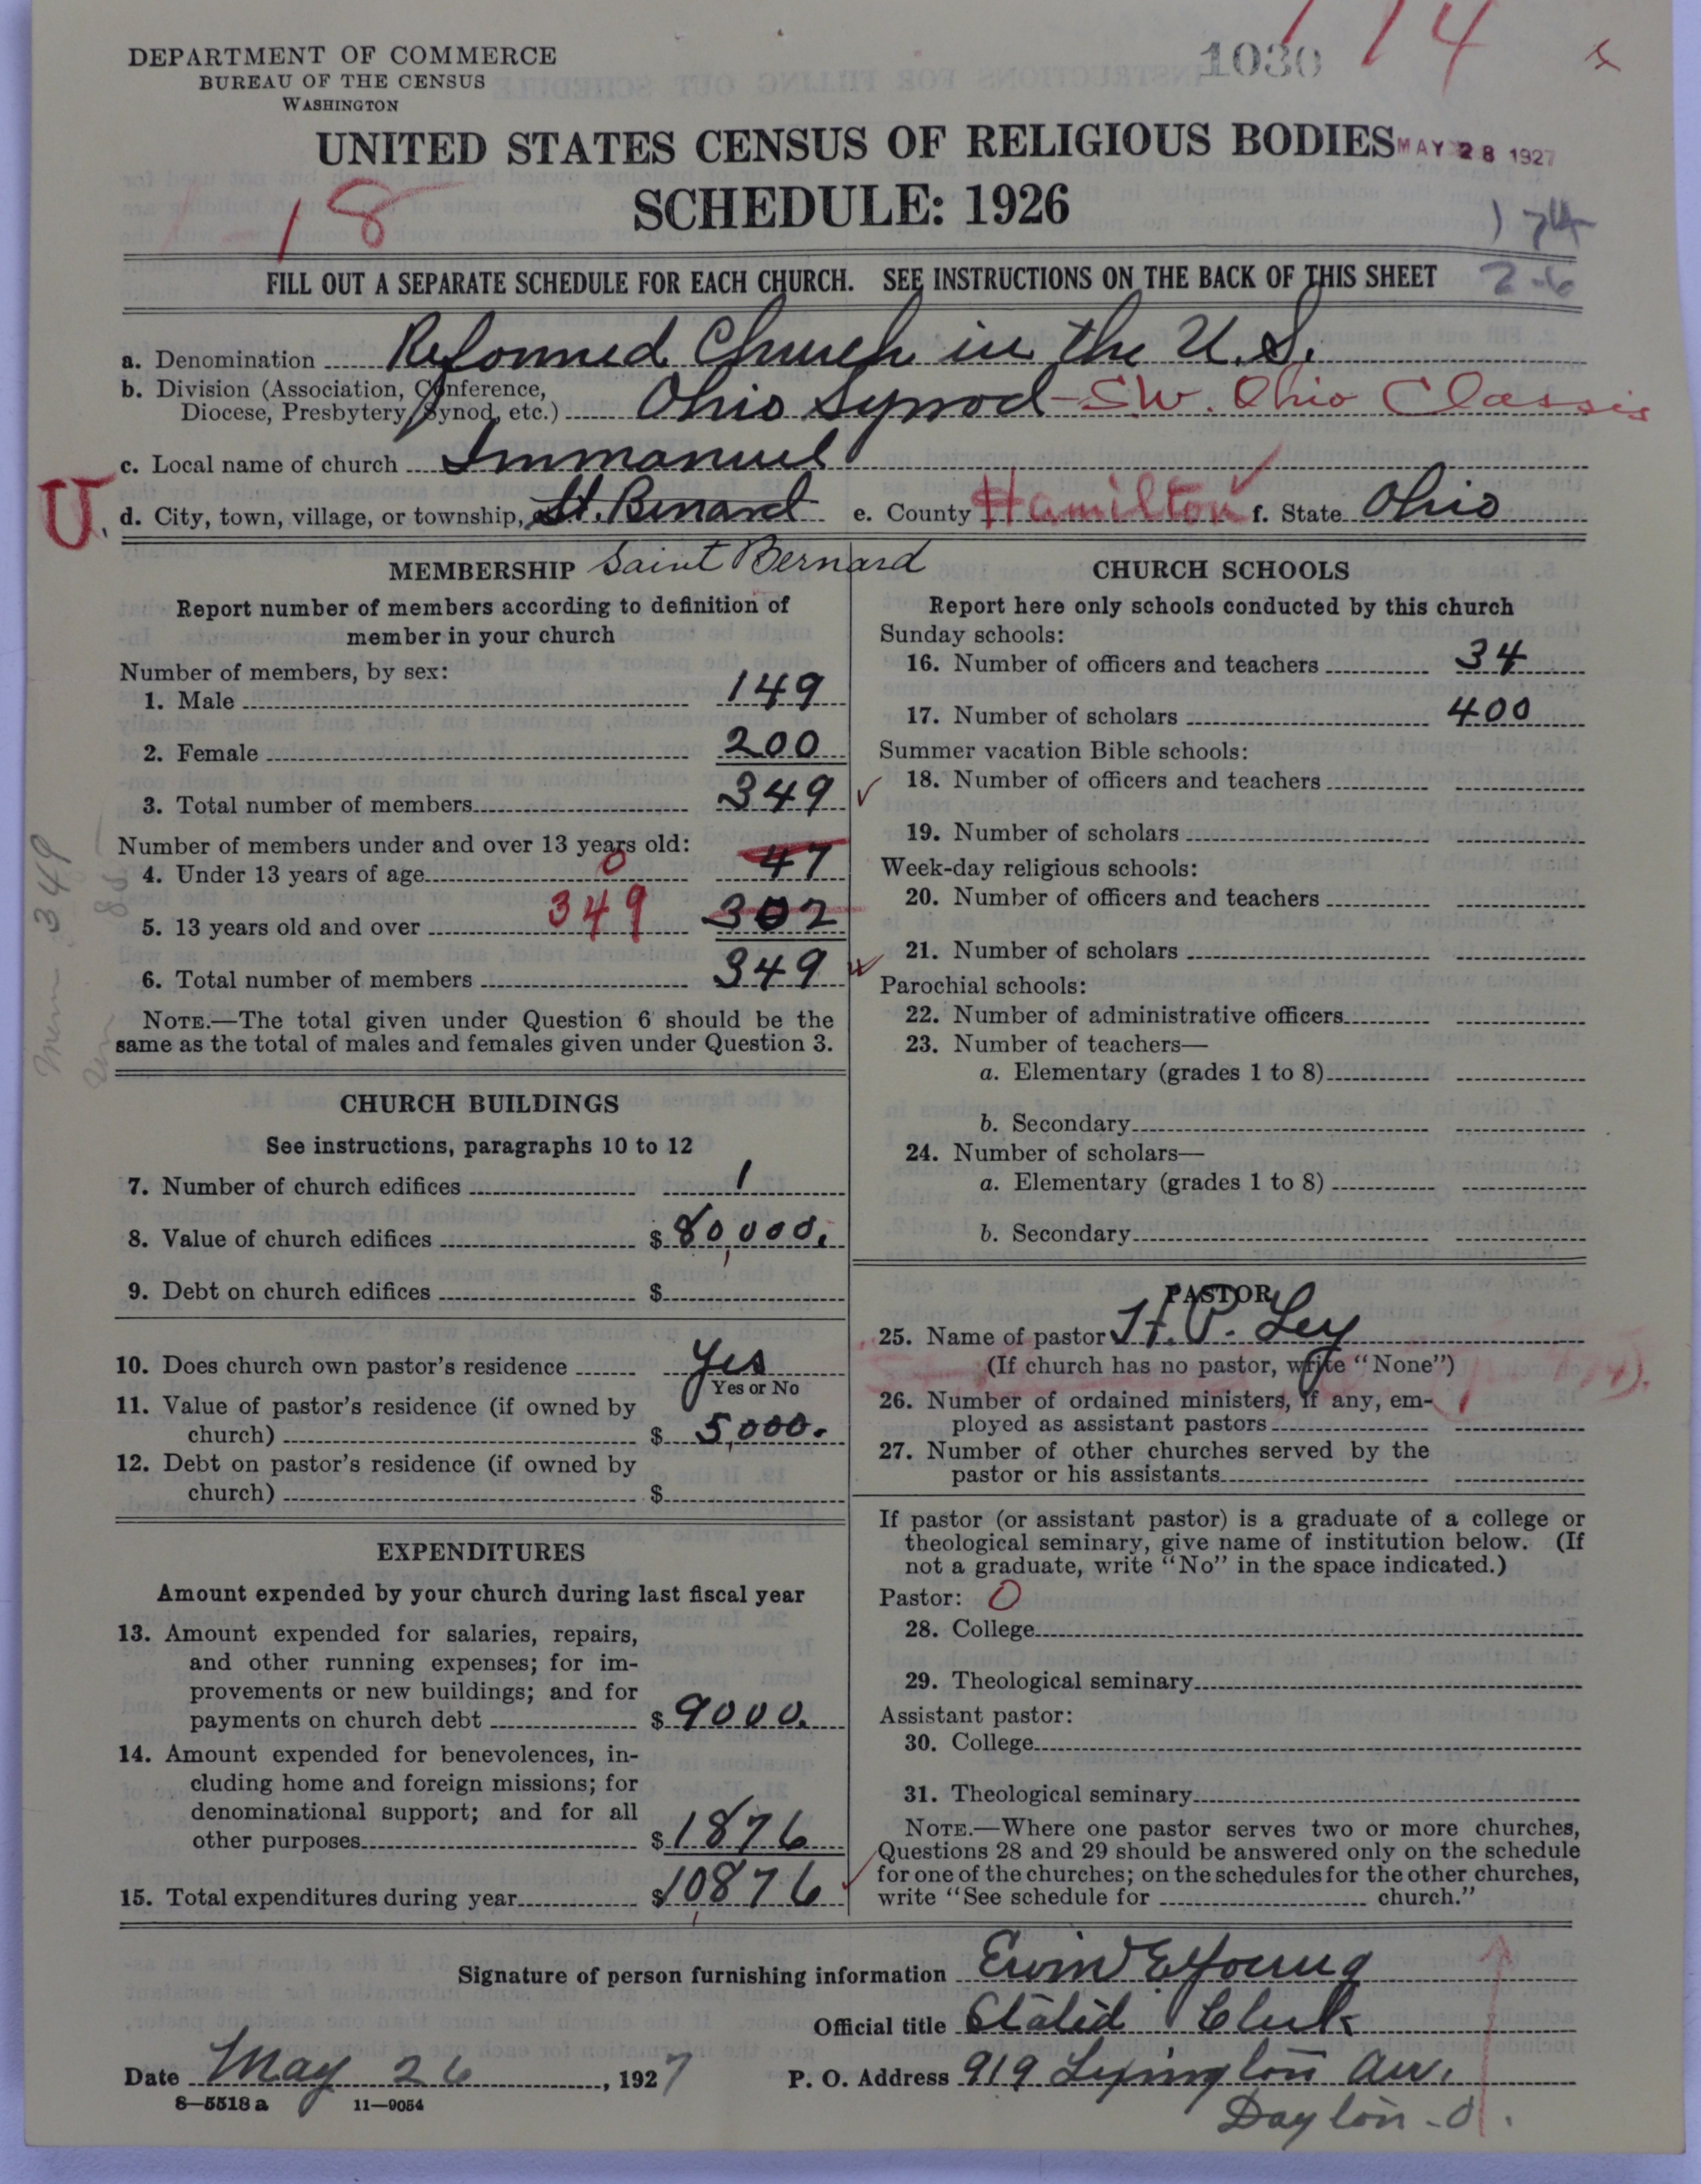 DEPARTMENT OF COMMERCE
BUREAU OF THE CENSUS
WASHINGTON
1030
14
UNITED STATES CENSUS OF RELIGIOUS BODIES
MAY 28 1927
SCHEDULE: 1926
18
174
2-6
FILL OUT A SEPARATE SCHEDULE FOR EACH CHURCH. SEE INSTRUCTIONS ON THE BACK OF THIS SHEET
a. Denomination Reformed Church in the U.S.
b. Division (Association, Conference,
Diocese, Presbytery, Synod, etc.) Ohio Synod - SW. Ohio Classis
c. Local name of church Immanuel
U. d. City, town, village, or township, St. Benard e. County Hamilton f. State Ohio
Saint Bernard
MEMBERSHIP
Report number of members according to definition of
member in your church
Number of members, by sex:
1. Male 149
2. Female 200
3. Total number of members 349
Number of members under and over 13 years old:
4. Under 13 years of age 0 47
5. 13 years old and over 349 302
6. Total number of members 349
NOTE.—The total given under Question 6 should be the
same as the total of males and females given under Question 3.
Mem 349
CHURCH BUILDINGS
See instructions, paragraphs 10 to 12
7. Number of church edifices 1
8. Value of church edifices $ 80,000.
9. Debt on church edifices $
10. Does church own pastor's residence Yes
Yes or No
11. Value of pastor's residence (if owned by
church) $ 5,000.
12. Debt on pastor's residence (if owned by
church) $
EXPENDITURES
Amount expended by your church during last fiscal year
13. Amount expended for salaries, repairs,
and other running expenses; for im-
provements or new buildings; and for
payments on church debt $ 9000.
14. Amount expended for benevolences, in-
cluding home and foreign missions; for
denominational support; and for all
other purposes $ 1876
15. Total expenditures during year $ 10,876
CHURCH SCHOOLS
Report here only schools conducted by this church
Sunday schools:
16. Number of officers and teachers 34
17. Number of scholars 400
Summer vacation Bible schools:
18. Number of officers and teachers
19. Number of scholars
Week-day religious schools:
20. Number of officers and teachers
21. Number of scholars
Parochial schools:
22. Number of administrative officers
23. Number of teachers—
a. Elementary (grades 1 to 8)
b. Secondary
24. Number of scholars—
a. Elementary (grades 1 to 8)
b. Secondary
PASTOR
25. Name of pastor H. P. Ley
(If church has no pastor, write "None")
26. Number of ordained ministers, if any, em-
ployed as assistant pastors
27. Number of other churches served by the
pastor or his assistants
If pastor (or assistant pastor) is a graduate of a college or
theological seminary, give name of institution below. (If
not a graduate, write "No" in the space indicated.)
Pastor: 0
28. College
29. Theological seminary
Assistant pastor:
30. College
31. Theological seminary
NOTE.—Where one pastor serves two or more churches,
Questions 28 and 29 should be answered only on the schedule
for one of the churches; on the schedules for the other churches,
write "See schedule for church."
Signature of person furnishing information Erwin E Young
Official title Stated Clerk
Date May 26, 1927 P. O. Address 919 Lexington Ave.
8—5518 a 11—9054
Dayton - O.